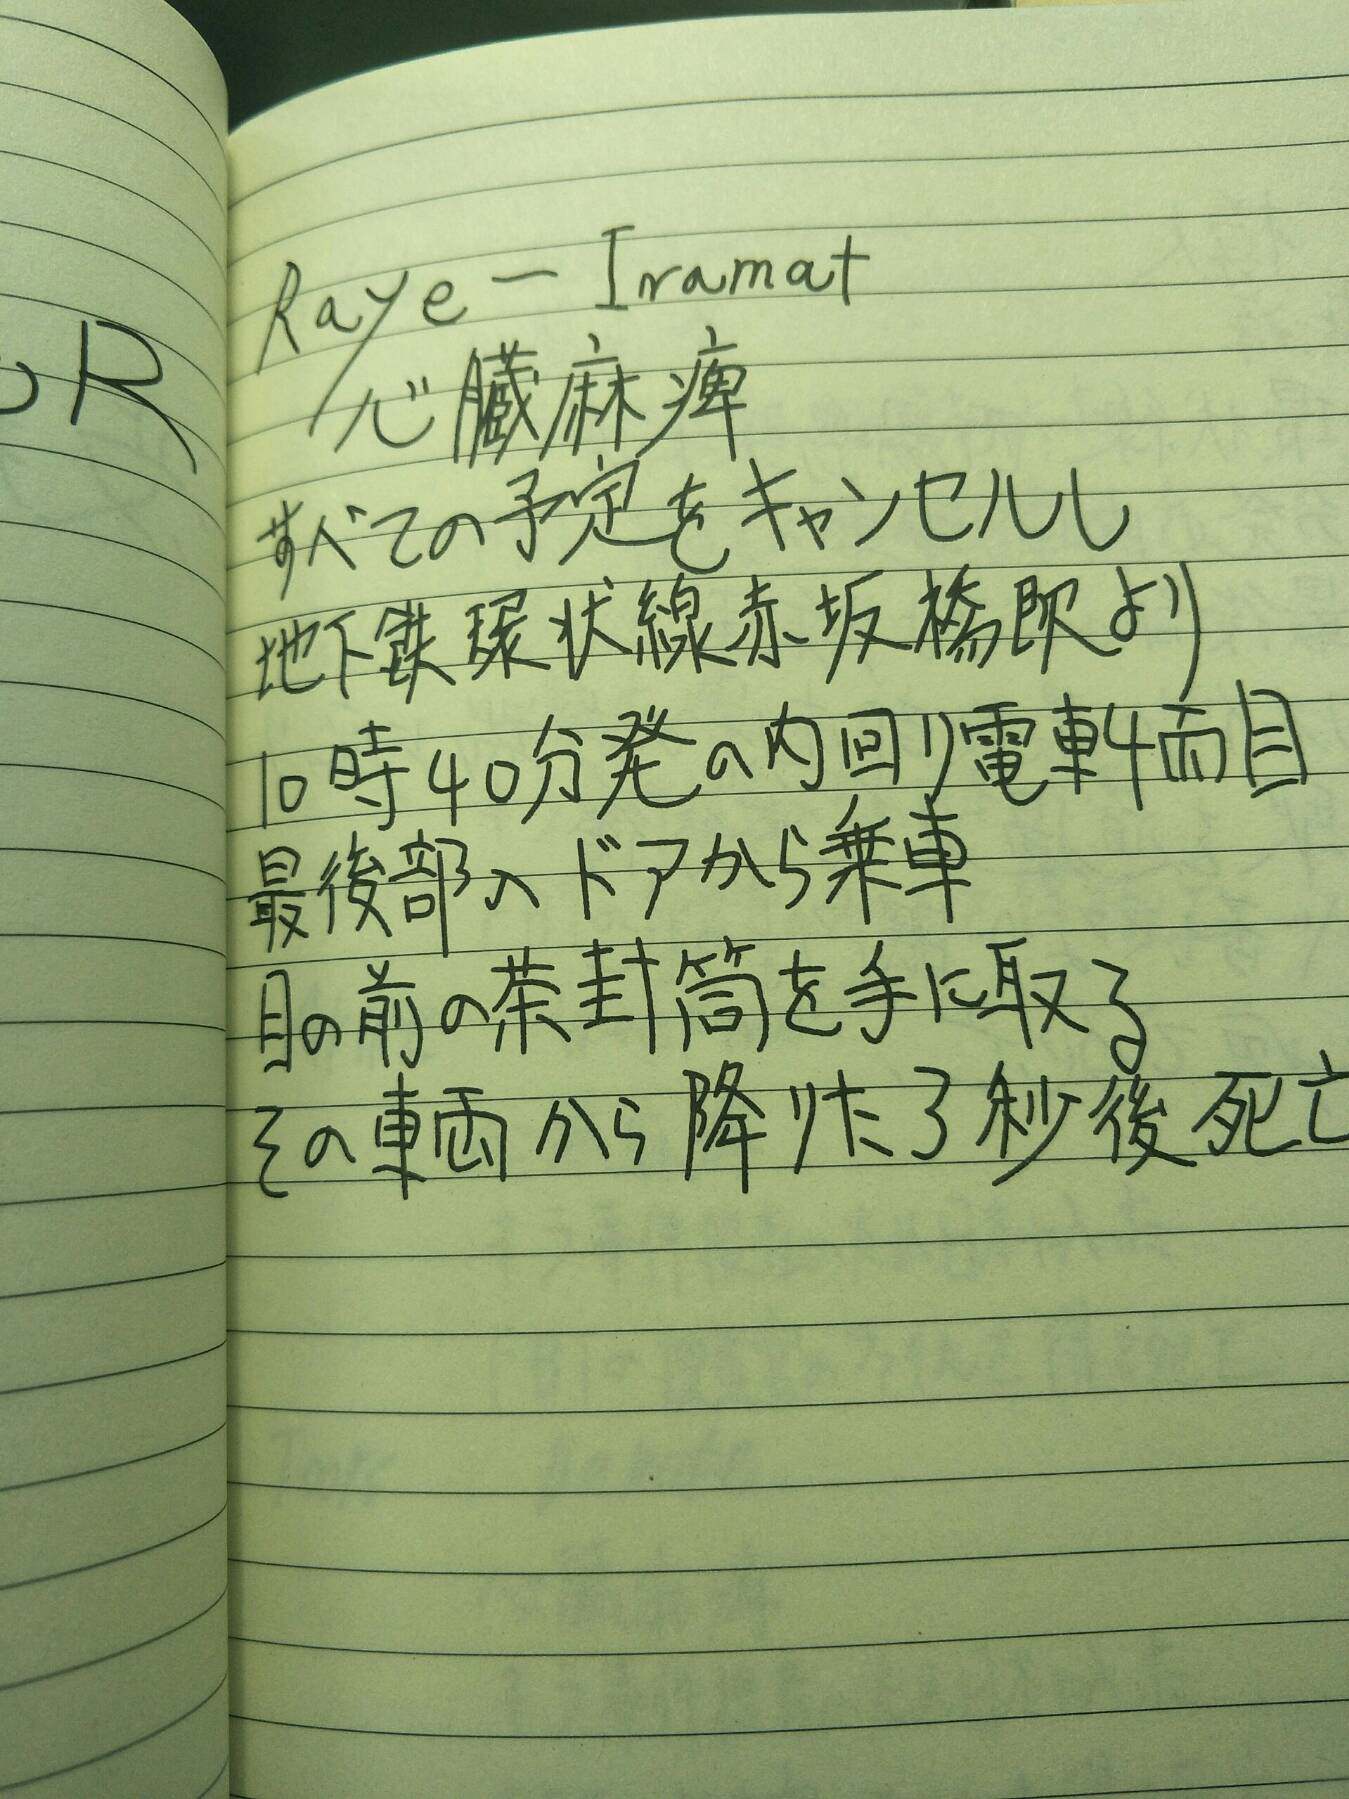 R
Raye ー Iramat
心臓麻痺
すべての予定をキャンセルし
地下鉄環状線赤坂橋駅より
10時40分発の内回り電車4両目
最後部のドアから乗車
目の前の茶封筒を手に取る
その車両から降りた3秒後死亡